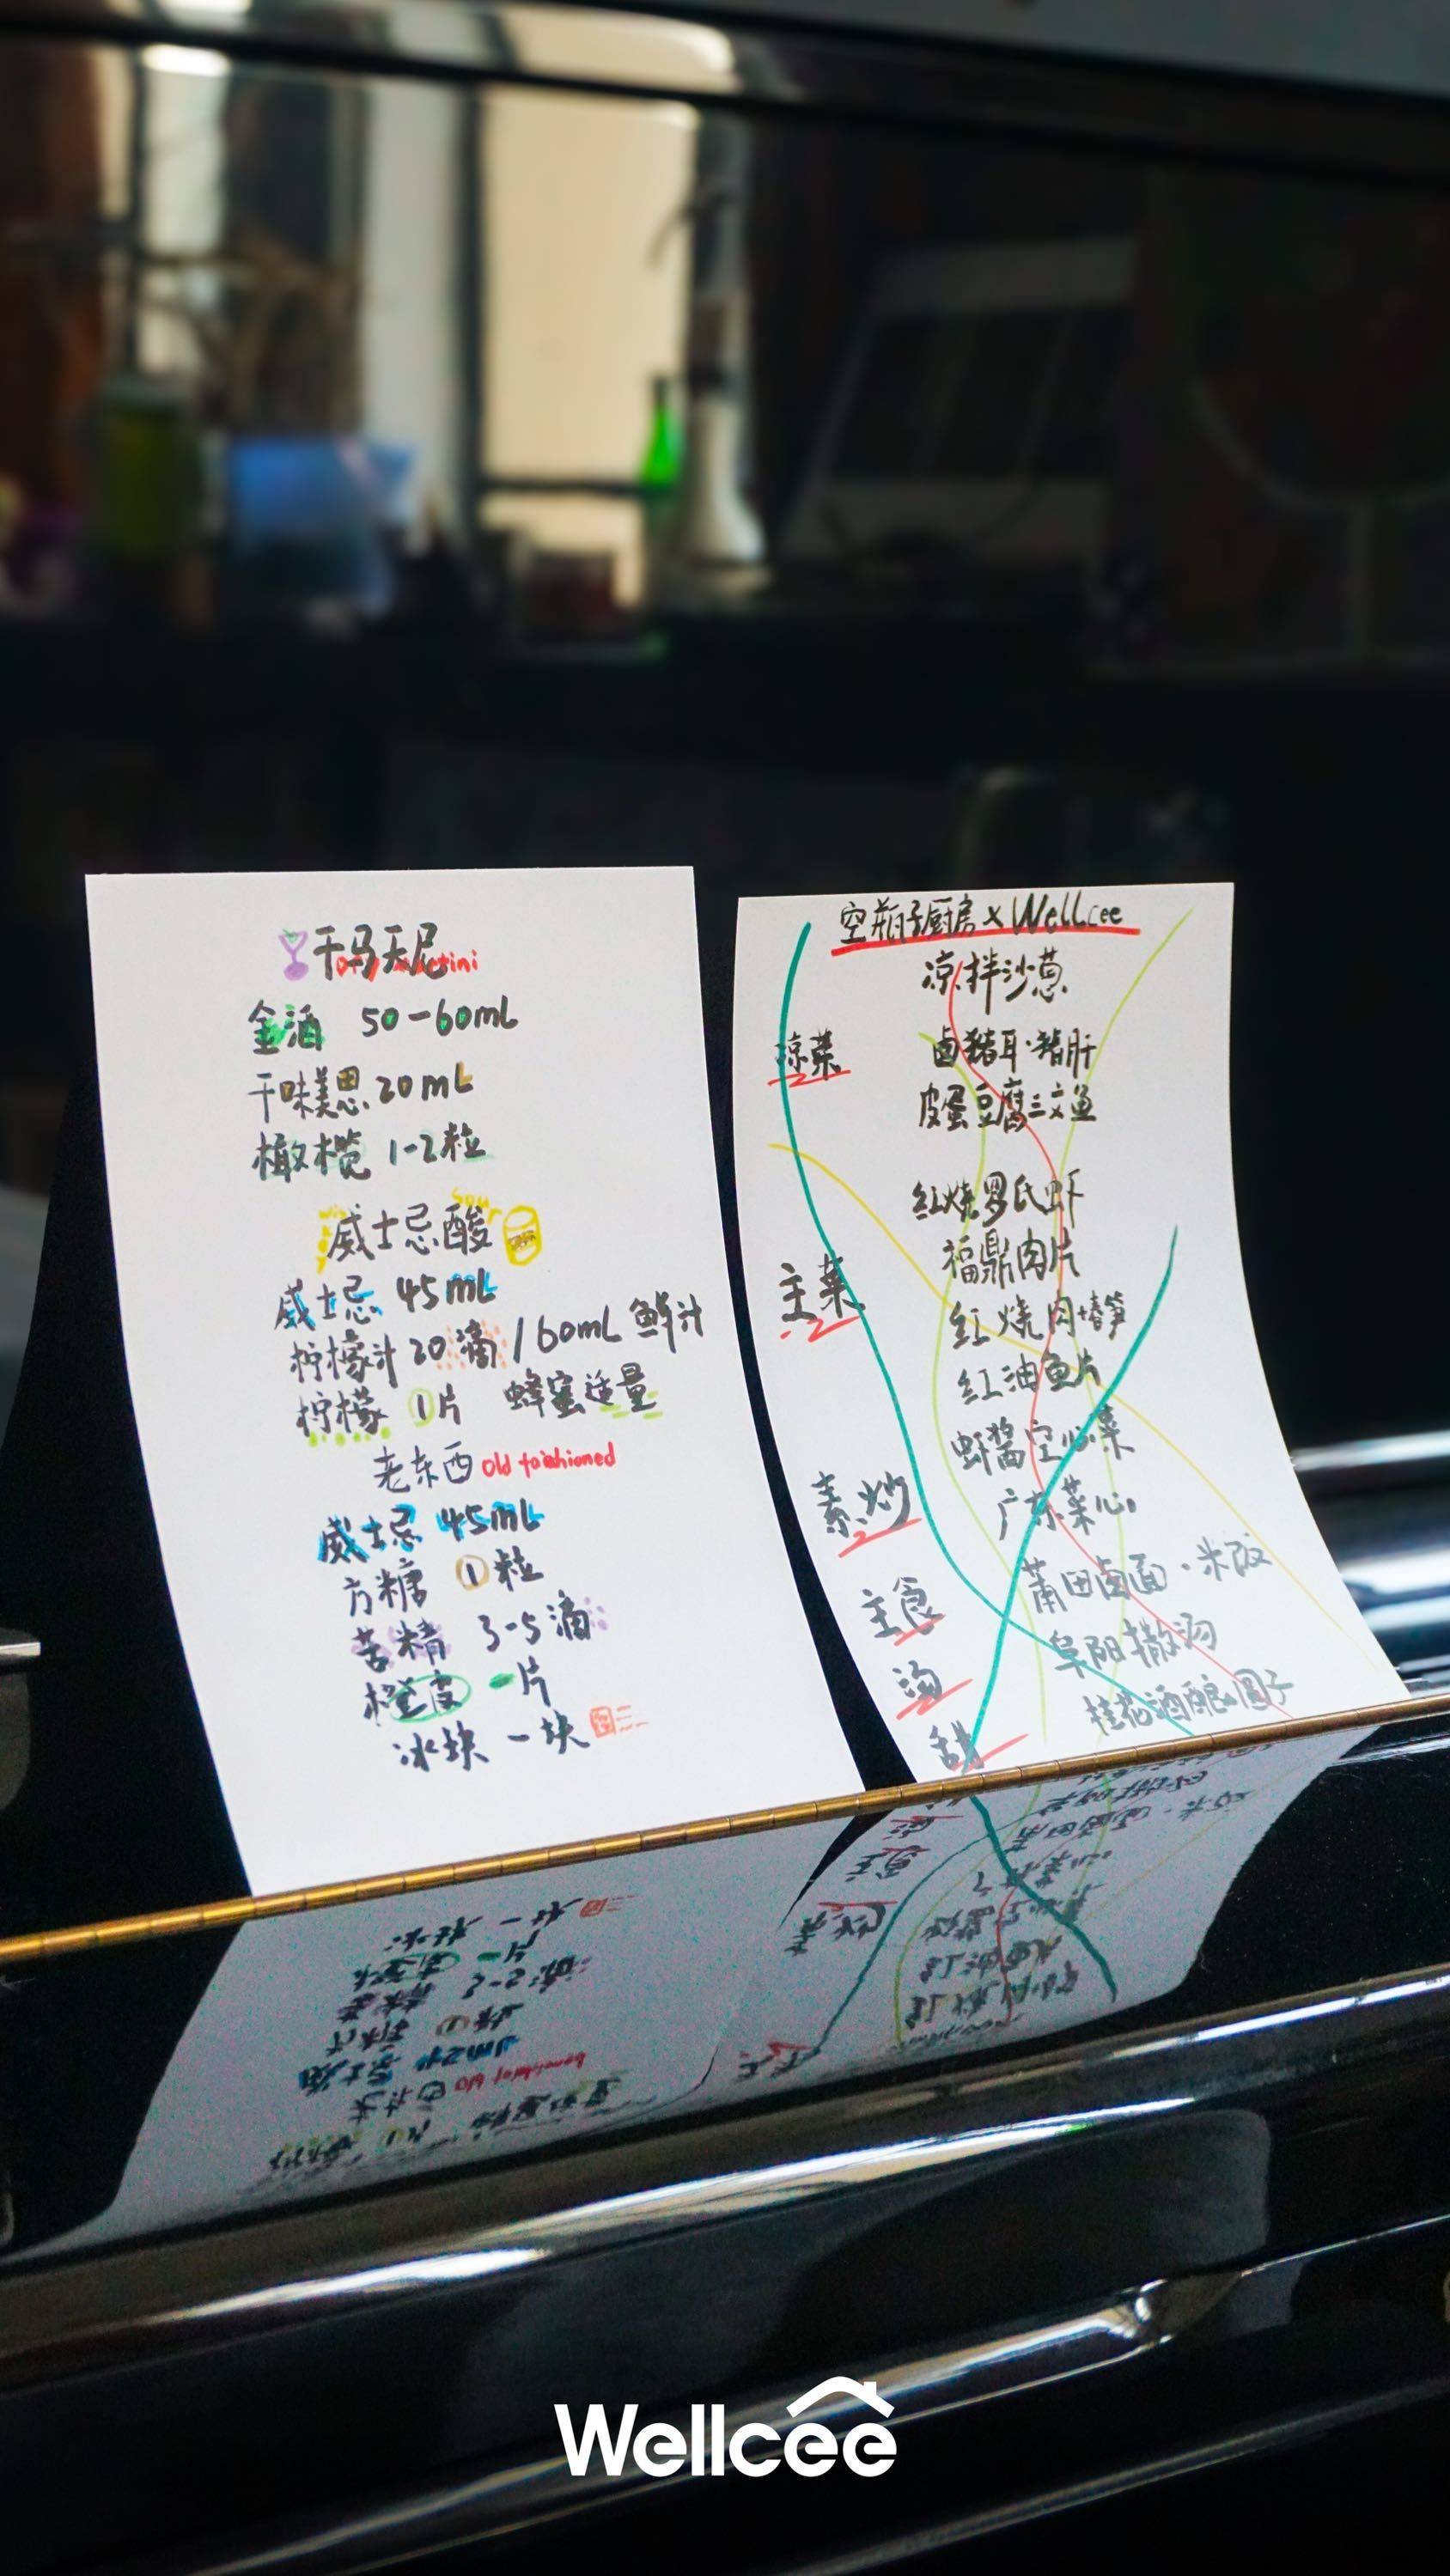 干马天尼
金酒 50-60mL
干味美思 20mL
橄榄 1-2粒
Sour
威士忌酸
威士忌 45mL
柠檬汁 20滴 / 60mL 鲜汁
柠檬 1片 蜂蜜适量
老东西 Old fashioned
威士忌 45mL
方糖 ①粒
苦精 3-5滴
橙皮 一片
冰块 一块
空瓶子厨房 x Wellcee
凉菜
凉拌沙葱
卤猪耳·猪肝
皮蛋豆腐三文鱼
主菜
红烧罗氏虾
福鼎肉片
红烧肉墙笋
红油鱼片
素炒
虾酱空心菜
广东菜心
主食
莆田卤面·米饭
汤
阜阳撒汤
甜
桂花酒酿圆子
Wellcee